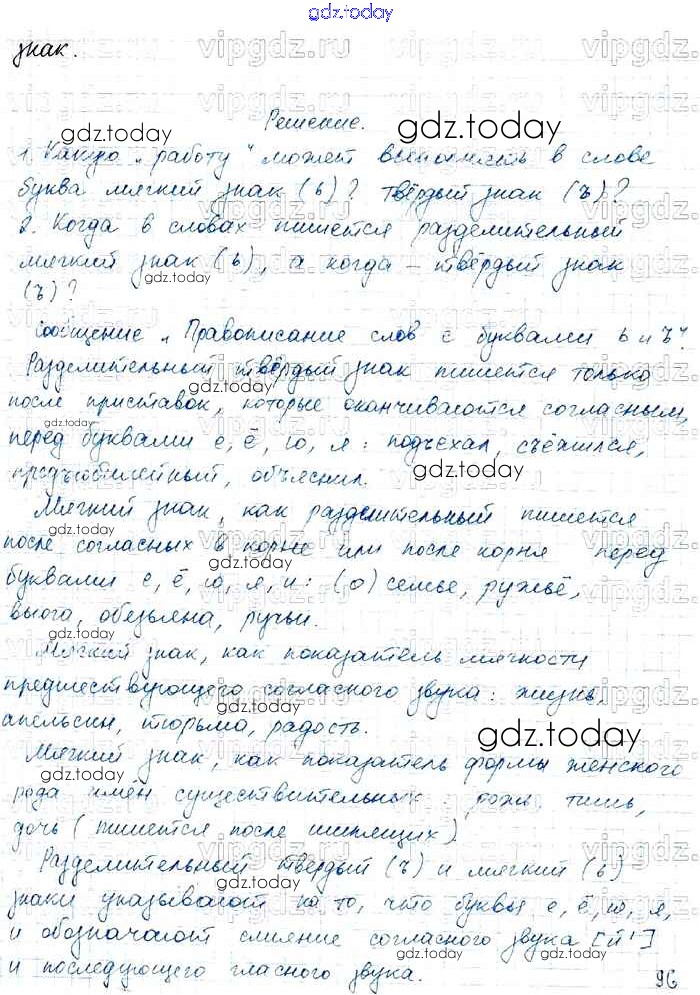 gdz.today
знак.
Решение.
1. Какую „работу" может выполнять в слове
буква мягкий знак (ь)? твёрдый знак (ъ)?
2. Когда в словах пишется разделительный
мягкий знак (ь), а когда – твёрдый знак
(ъ)?
Сообщение „Правописание слов с буквами ь и ъ".
Разделительный твёрдый знак пишется только
после приставок, которые оканчиваются согласным,
перед буквами е, ё, ю, я: подъехал, съёжился,
предъюбилейный, объяснил.
Мягкий знак, как разделительный пишется
после согласных в корне или после корня перед
буквами е, ё, ю, я, и: (о) семье, ружьё,
вьюга, обезьяна, ручьи.
Мягкий знак, как показатель мягкости
предшествующего согласного звука: жизнь,
апельсин, тюрьма, радость.
Мягкий знак, как показатель формы женского
рода имён существительных: рожь, тишь,
дочь (пишется после шипящих)
Разделительный твёрдый (ъ) и мягкий (ь)
знаки указывают на то, что буквы е, ё, ю, я,
и обозначают слияние согласного звука [й']
и последующего гласного звука.
96